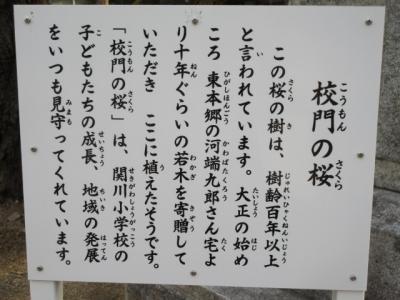 校門の桜
この桜の樹は、樹齢百年以上
と言われています。大正の始め
ころ 東本郷の河端九郎さん宅よ
り十年ぐらいの若木を寄贈して
いただき ここに植えたそうです。
「校門の桜」は、関川小学校の
子どもたちの成長、地域の発展
をいつも見守ってくれています。